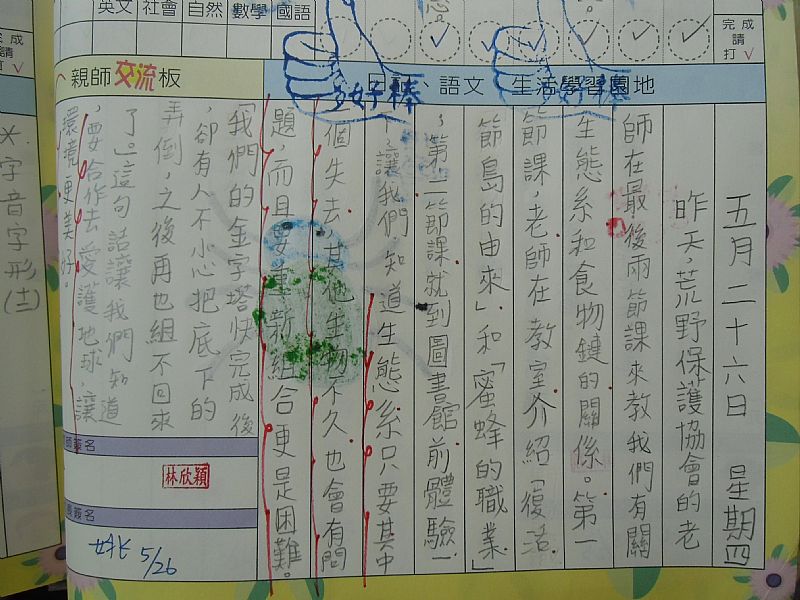 英文 社會 自然 數學 國語
完成請打√
親師交流板
日記、語文、生活學習園地
多好棒
五月二十六日 星期四
昨天,荒野保護協會的老
師在最後兩節課來教我們有關
生態系和食物鏈的關係。第一
節課,老師在教室介紹「復活
節島的由來」和「蜜蜂的職業」
,第二節課就到圖書館前體驗一
下,讓我們知道生態系只要其中
一個失去,其他生物不久也會有問
題,而且要重新組合更是困難。
「我們的金字塔快完成後
,卻有人不小心把底下的
弄倒之後再也組不回來
了。」這句話讓我們知道
,要合作去愛護地球,讓
環境更美好。
師簽名
林欣穎
長簽名
5/26
字音字形(十二)